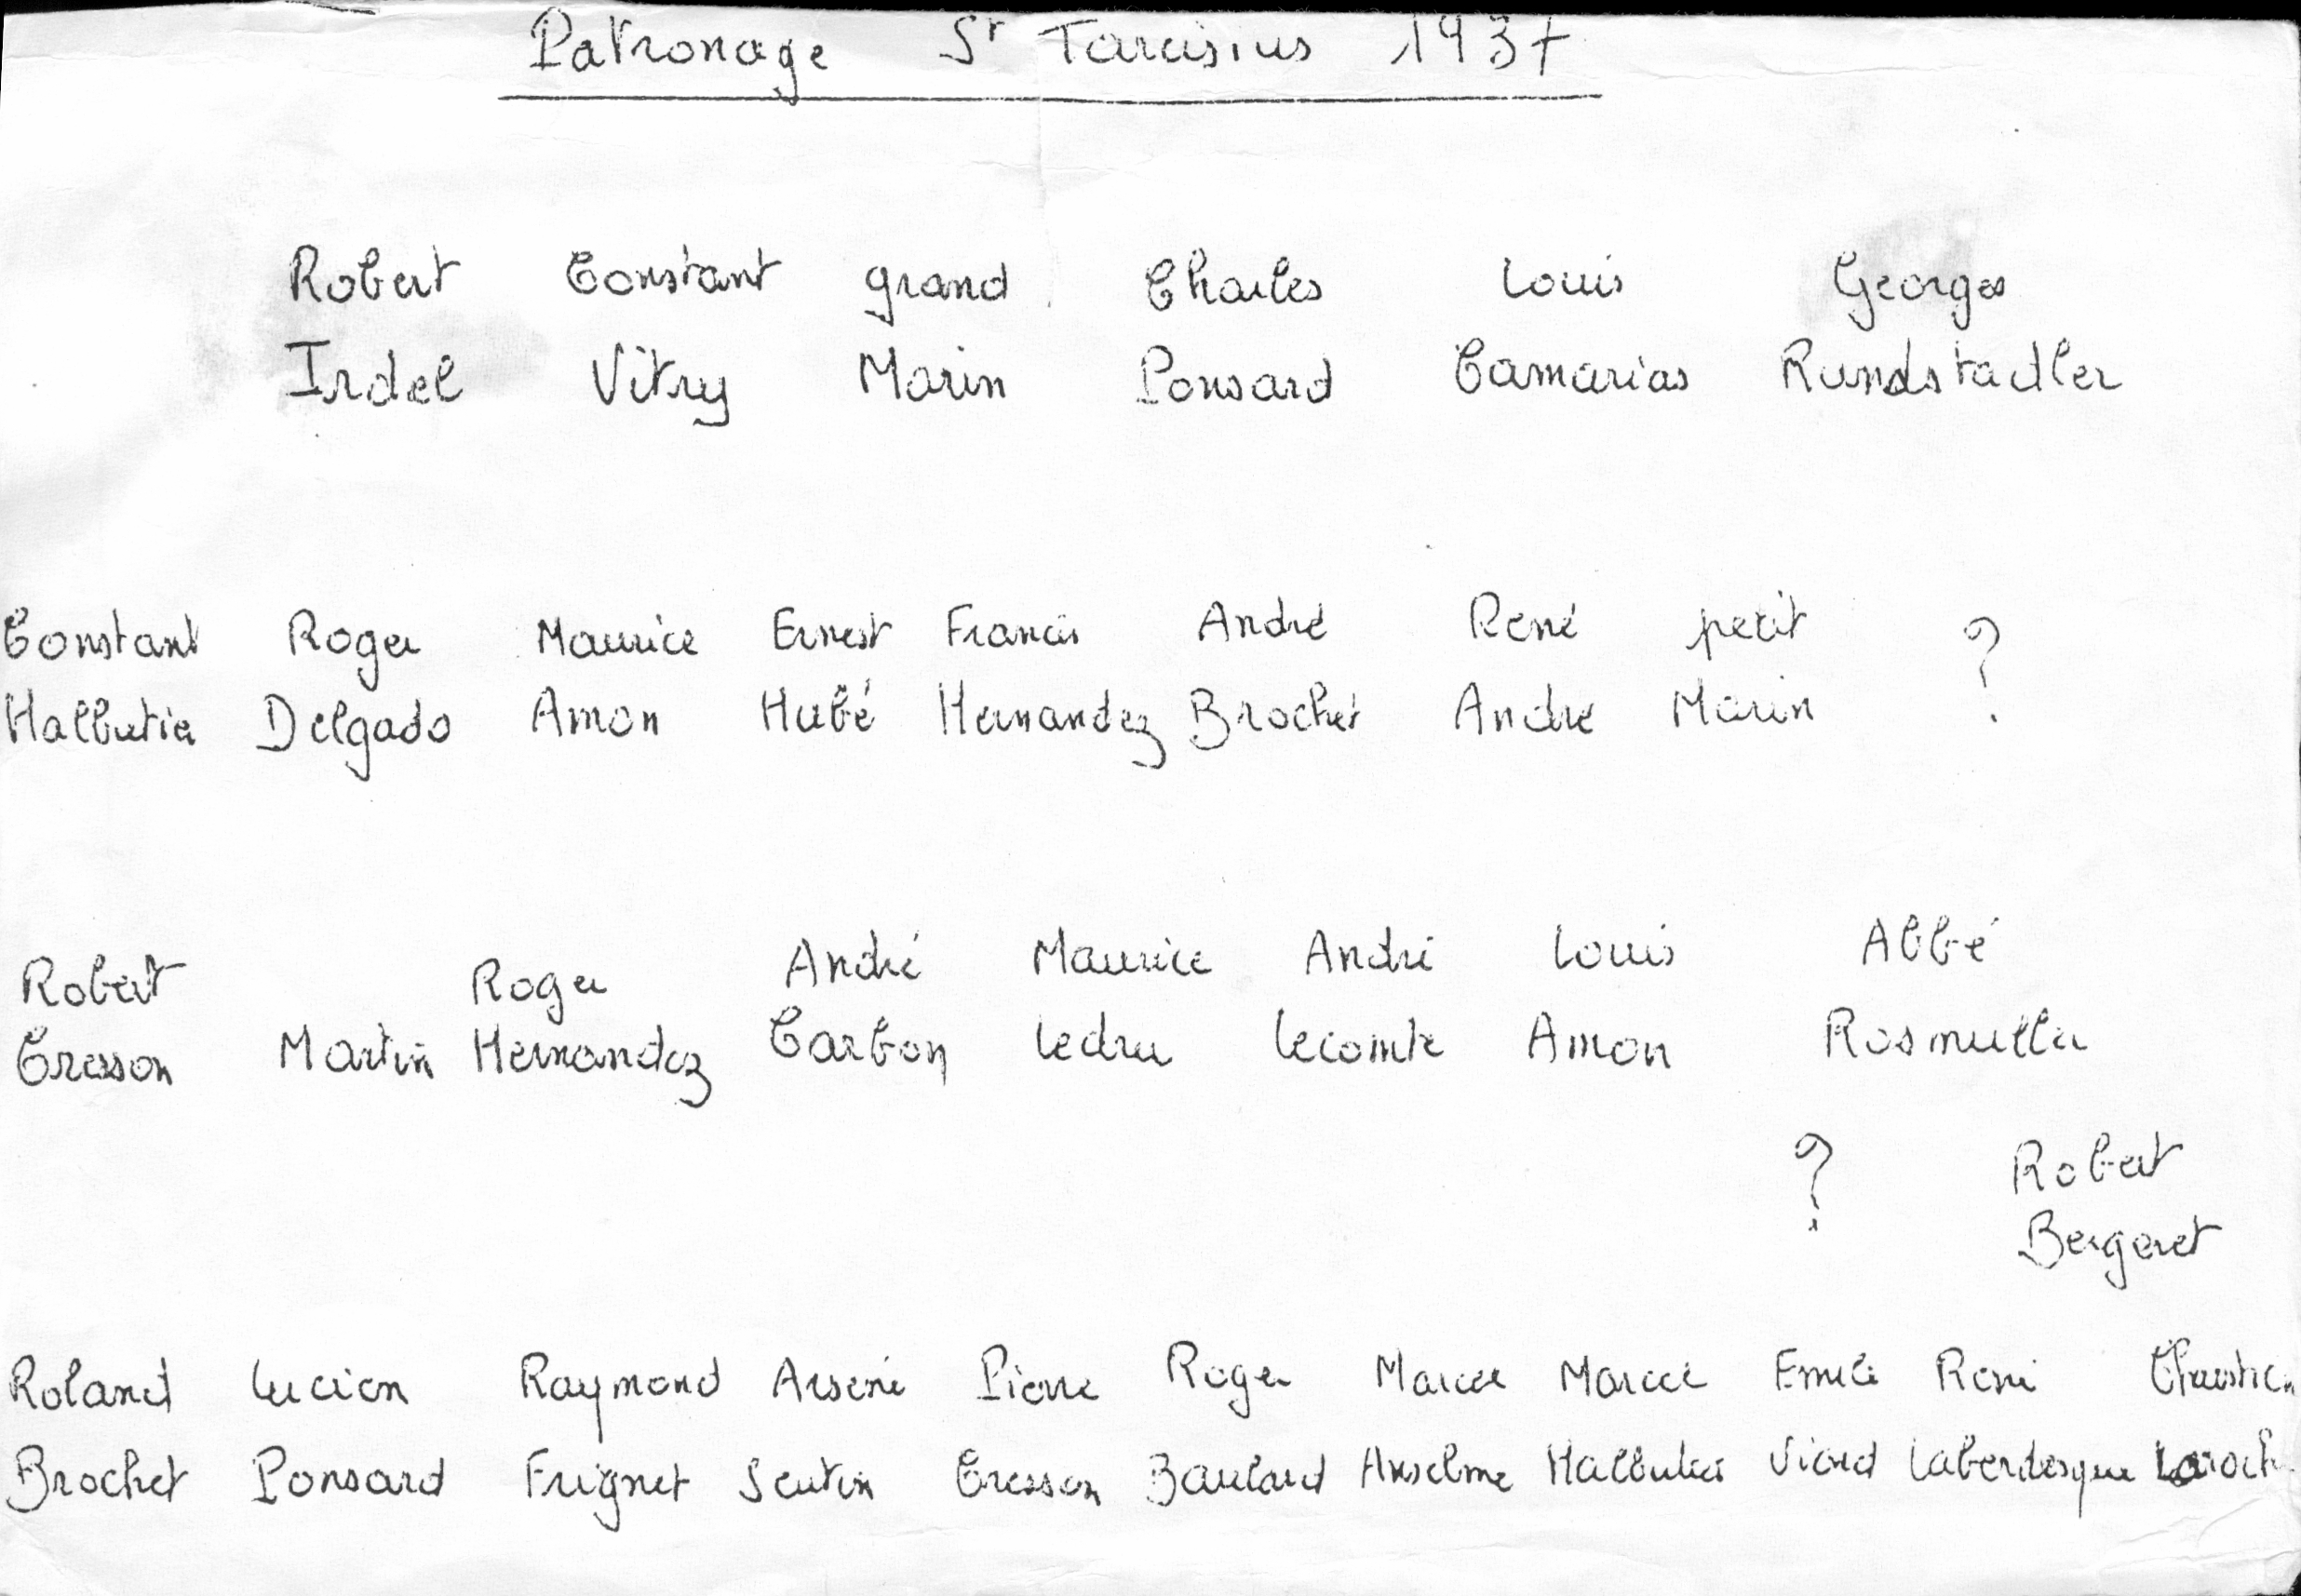 Patronage St Tarcisius 1937
Robert Constant grand Charles Louis Georges
Irdel Vitry Marin Ponsard Camarias Rundstadler
Constant Roger Maurice Ernest Francis André René petit ?
Halbutier Delgado Amon Hubé Hernandez Brochet André Marin
Robert Roger André Maurice André Louis Abbé
Cresson Martin Hernandez Carbon Ledru Lecomte Amon Rosmuller
? Robert
Bergeret
Roland Lucien Raymond Arsène Pierre Roger Marcel Marcel Emile René Christian
Brochet Ponsard Frignet Scutin Cresson Baulard Anselme Halbutier Viard Laberdesque Laroch